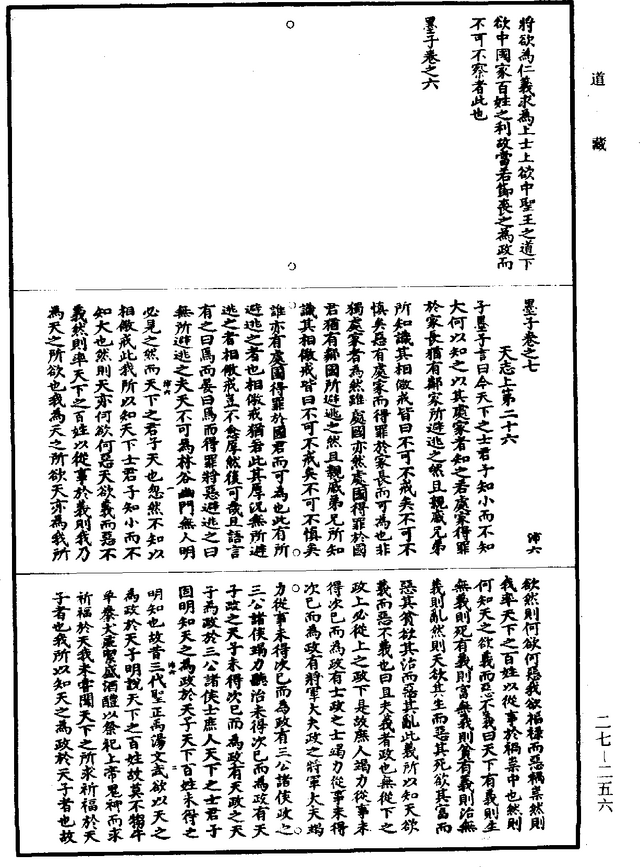 道藏
將欲為仁義求為上士上欲中聖王之道下
欲中國家百姓之利故當若節喪之為政而
不可不察者此也
墨子卷之六
墨子卷之七
沛六
天志上第二十六
子墨子言曰今天下之士君子知小而不知
大何以知之以其處家者知之若處家得罪
於家長猶有鄰家所避逃之然且親戚兄弟
所知識其相儆戒皆曰不可不戒矣不可不
慎矣惡有處家而得罪於家長而可為也非
獨處家者為然雖處國亦然處國得罪於國
君猶有鄰國所避逃之然且親戚兄弟所知
識其相儆戒皆曰不可不戒矣不可不慎矣
誰亦有處國得罪於國君而可為也此有所
避逃之者也相儆戒猶若此其厚況無所避
逃之者相儆戒豈不愈厚然後可哉且語言
有之曰焉而晏日焉而得罪將惡避逃之曰
無所避逃之夫天不可為林谷幽門無人明
必見之然而天下之君子天也忽然不知以
相儆戒此我所以知天下士君子知小而不
知大也然則天亦何欲何惡天欲義而惡不
義然則率天下之百姓以從事於義則我乃
為天之所欲也我為天之所欲天亦為我所
欲然則何欲何惡我欲福祿而惡禍祟然則
我率天下之百姓以從事於禍祟中也然則
何以知天之欲義而惡不義曰天下有義則生
無義則死有義則富無義則貧有義則治無
義則亂然則天欲其生而惡其死欲其富而
惡其貧欲其治而惡其亂此義所以知天欲
義而惡不義也曰且夫我者政也無從下之
政上必從上之政下是故庶人竭力從事未
得次己而為政有士政之士竭力從事未得
次己而為政有將軍大夫政之將軍大夫竭
力從事未得次己而為政有三公諸侯政之
三公諸侯竭力聽治未得次己而為政有天
子政之天子未得次己而為政有天政之天
子為政於三公諸侯士庶人天下之士君子
固明知天之為政於天子天下百姓未得之
明知也故昔三代聖王禹湯文武欲以天之
為政於天子明說天下之百姓故莫不犓牛
羊豢犬彘絜粢盛酒醴以祭祀上帝鬼神而求
祈福於天我未嘗聞天下之所求祈福於天
子者也我所以知天之為政於天子者也故
二七-二五六